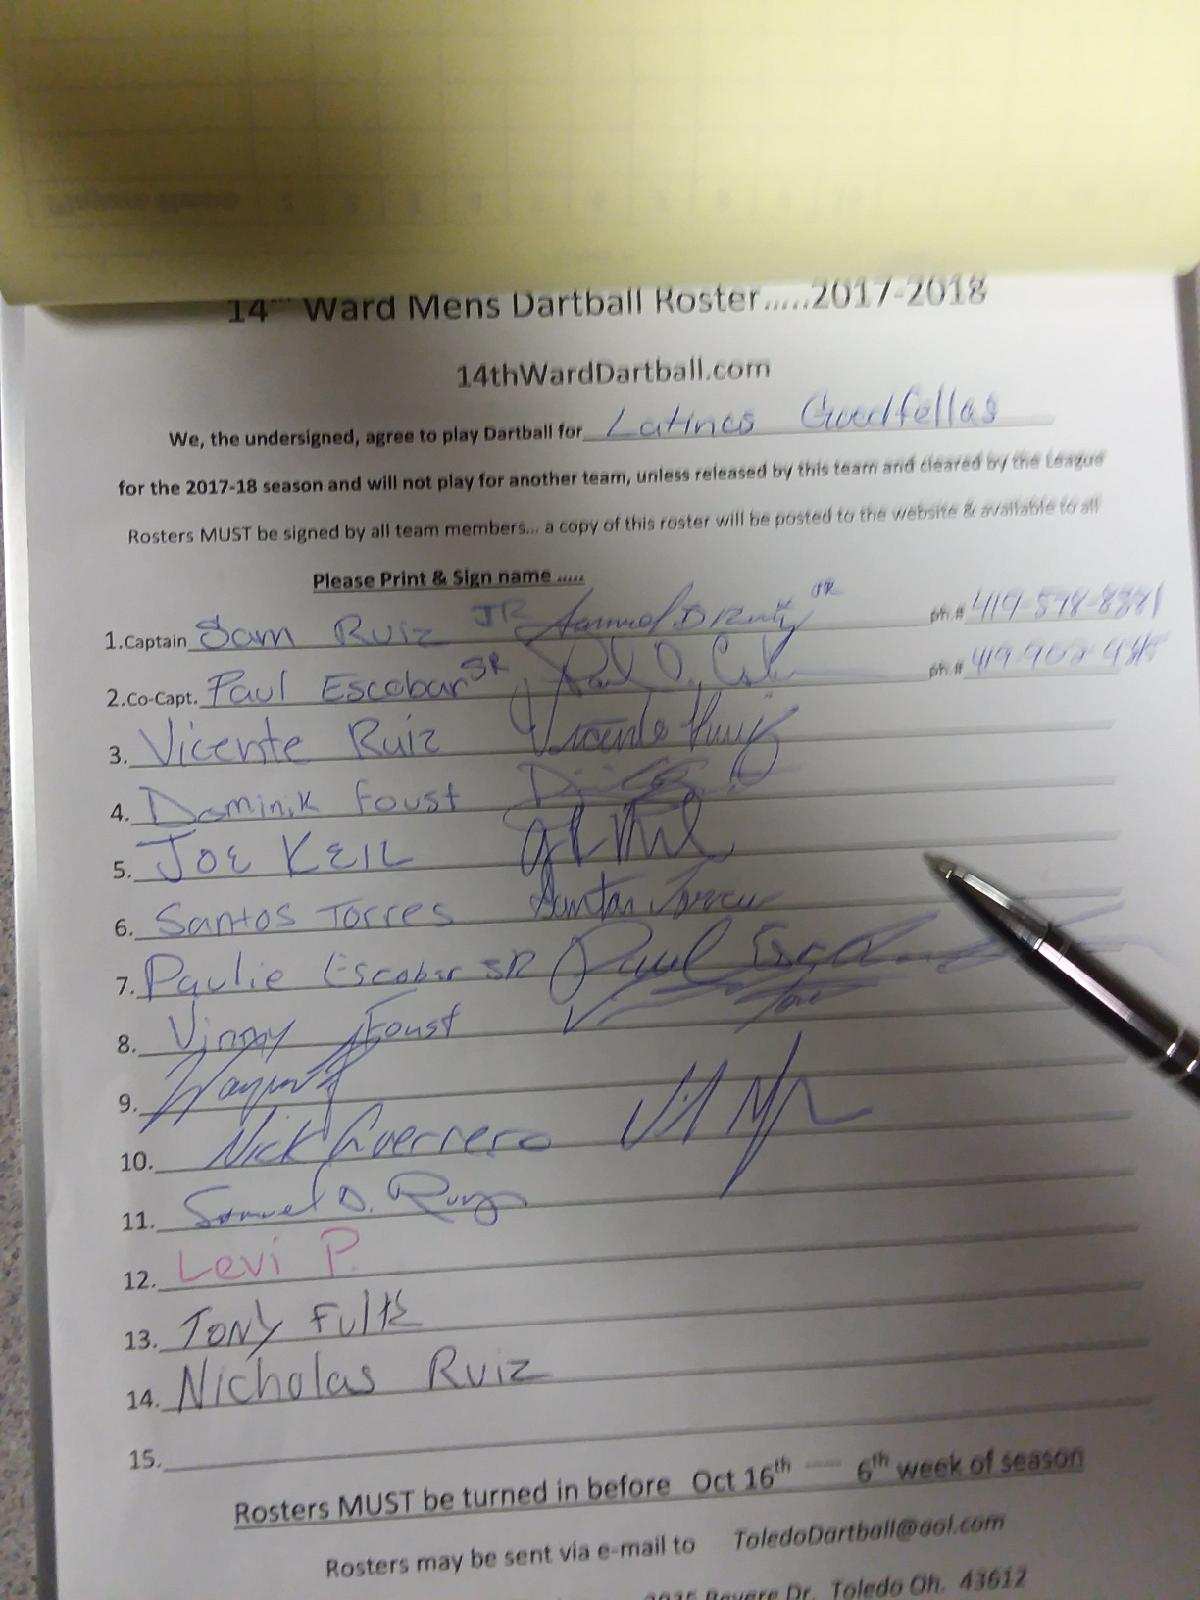 14th Ward Mens Dartball Roster.....2017-2018
14thWardDartball.com
We, the undersigned, agree to play Dartball for Latinos Goodfellas
for the 2017-18 season and will not play for another team, unless released by this team and cleared by the League
Rosters MUST be signed by all team members... a copy of this roster will be posted to the website & available to all
Please Print & Sign name .....
1.Captain Sam Ruiz JR Samuel D Ruiz JR ph.# 419-
2.Co-Capt. Paul Escobar SR Paul ph.# 419-902-
3. Vicente Ruiz Vicente Ruiz
4. Dominik Foust
5. JOE KEIL
6. Santos Torres Santos Torres
7. Paulie Escobar SR Paul
8. Vinny Foust
9.
10. Nick Guerrero
11. Samuel D. Ruiz
12. Levi P.
13. TONY Fults
14. Nicholas Ruiz
15.
Rosters MUST be turned in before Oct 16th ---- 6th week of season
Rosters may be sent via e-mail to ToledoDartball@aol.com
Revere Dr. Toledo Oh. 43612